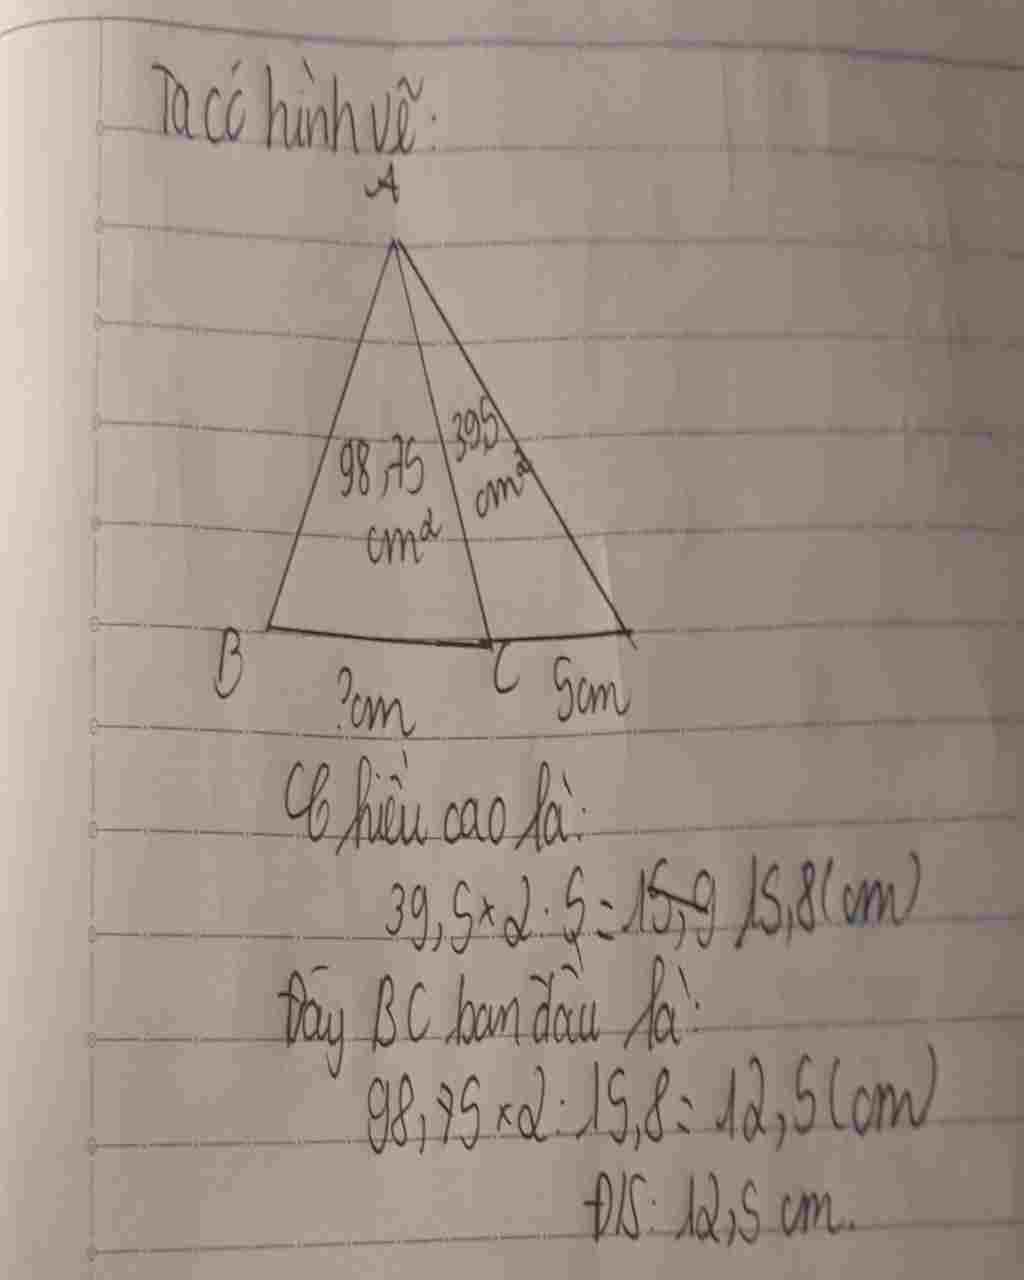 Ta có hình vẽ:
A
98,75
cm²
39,5
cm²
B
C
?cm
5cm
Chiều cao là:
39,5 × 2 : 5 = 15,9 15,8 (cm)
Đãy BC ban đầu là:
98,75 × 2 : 15,8 = 12,5 (cm)
Đ/S: 12,5 cm.